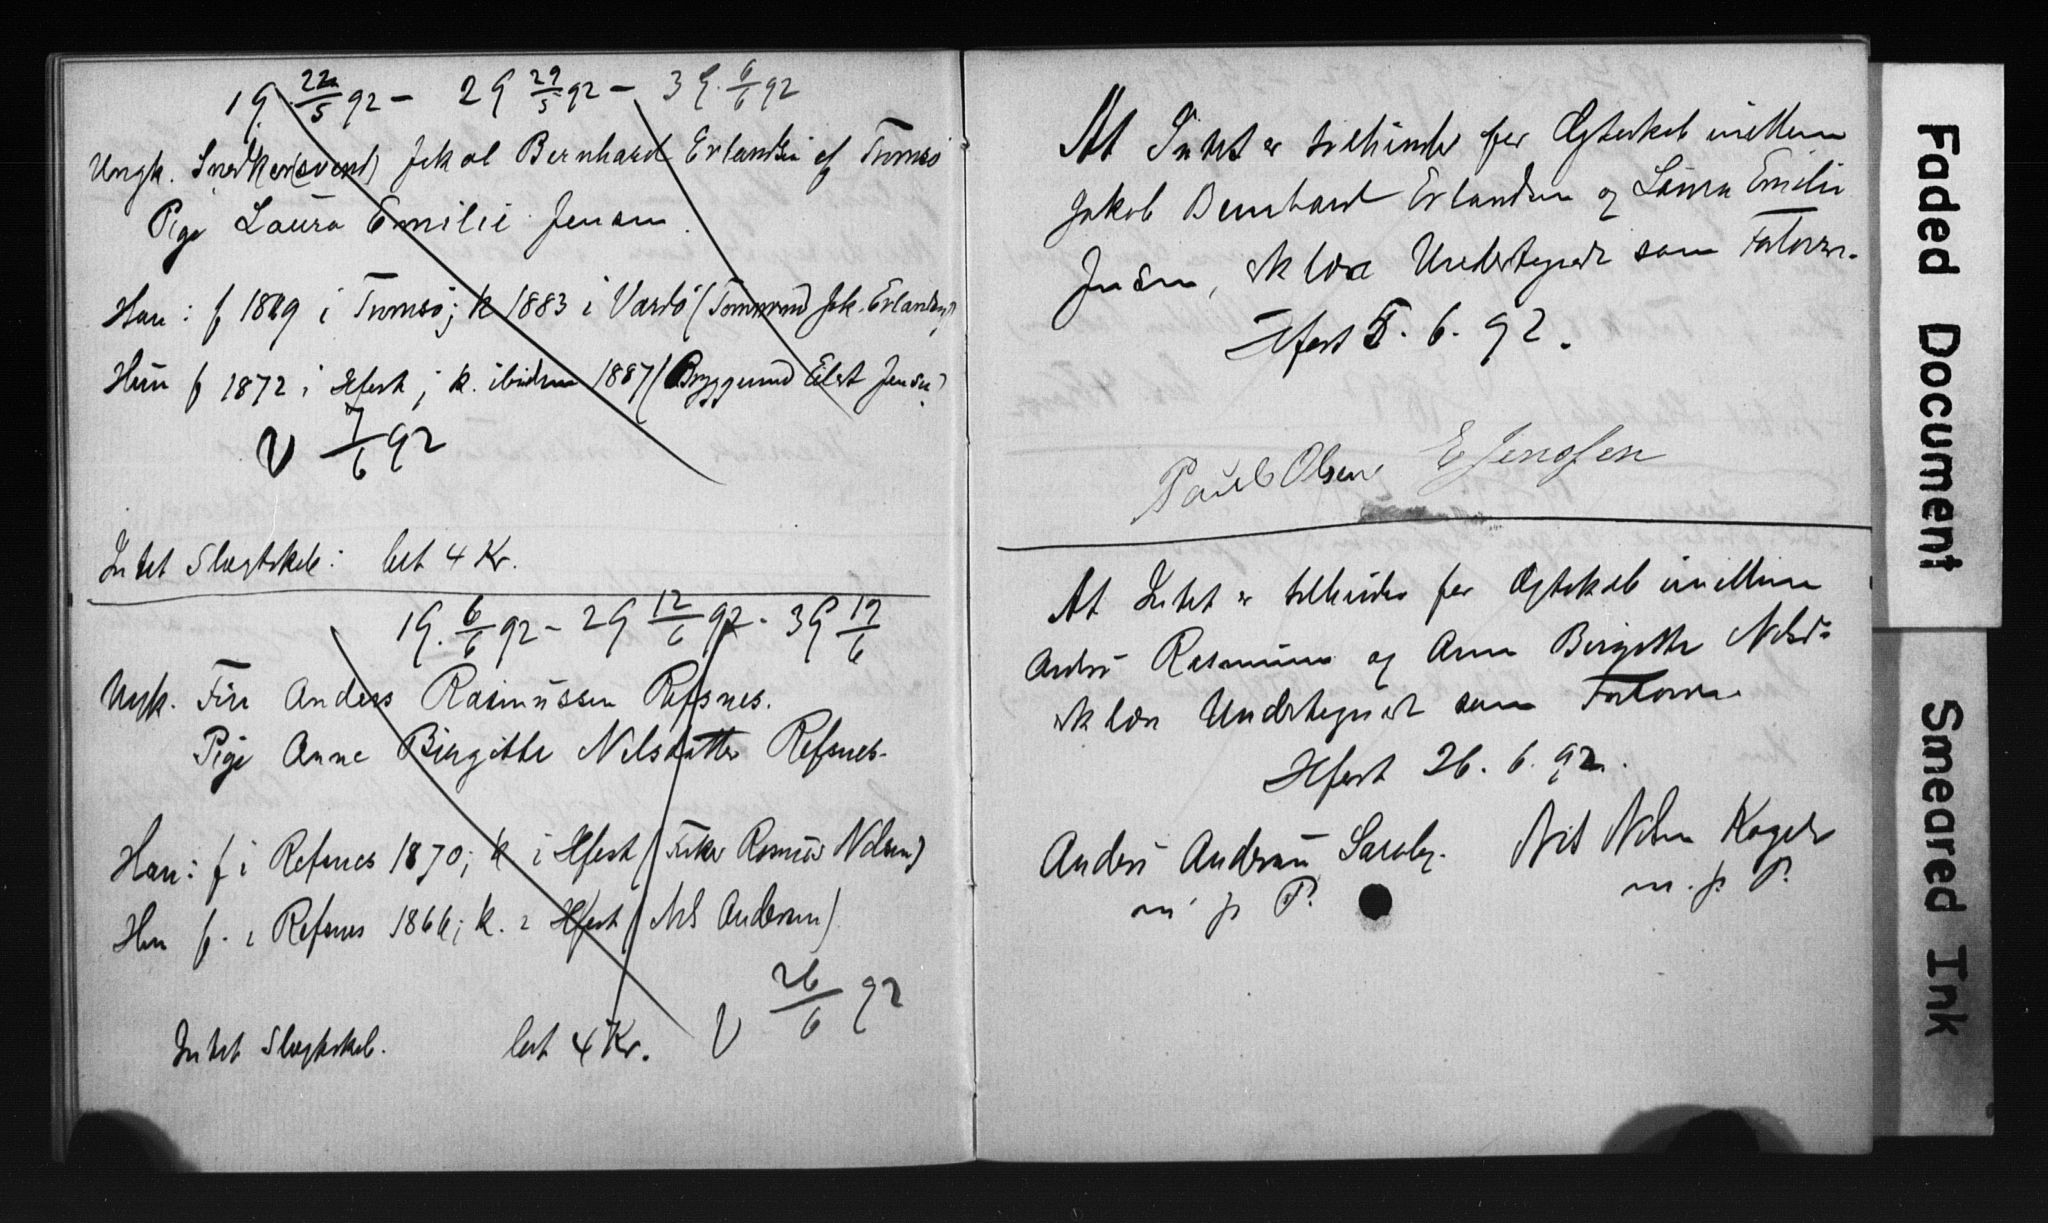 1 G. 22/5 92 – 2 G 29/5 92 – 3 G. 6/6 92
Ungk. Snedkersvend Jakob Bernhard Erlandsen af Tromsø
Pige Laura Emilie Jensen.
Han: f 1869 i Tromsø; k 1883 i Vardø (Tømmermd Jak. Erlandsen)
Hun f 1872 i Hfest; k. ibidem 1887 (Byggmd Eilert Jensen)
V 7/6 92
Intet Slægtskab: bet 4 Kr.
1 G. 6/6 92 – 2 G 12/6 92 – 3 G 19/6
Ungk. Fisk Anders Rasmussen Refsnes.
Pige Anne Birgitte Nilsdatter Refsnes
Han: f i Refsnes 1870; k i Hfest (Fisker Rasmus Nilsen)
Hun f. i Refsnes 1866; k. i Hfest (Nils Andersen)
V 26/6 92
Intet Slægtskab. bet 4 Kr.
At Intet er tilhinder for Ægteskab imellem
Jakob Bernhard Erlandsen og Laura Emilie
Jensen, erklære Undertegnede som Forlovere.
Hfest 5. 6. 92.
Paul Olsen E Jensen
At Intet er tilhinder for Ægteskab imellem
Anders Rasmussen og Anne Birgitte Nilsd.
erklære Undertegnede som Forlovere
Hfest 26. 6. 92.
Anders Andersen Nils Nilsen
m. p. P. m. p. P.
Faded Document
Smeared Ink